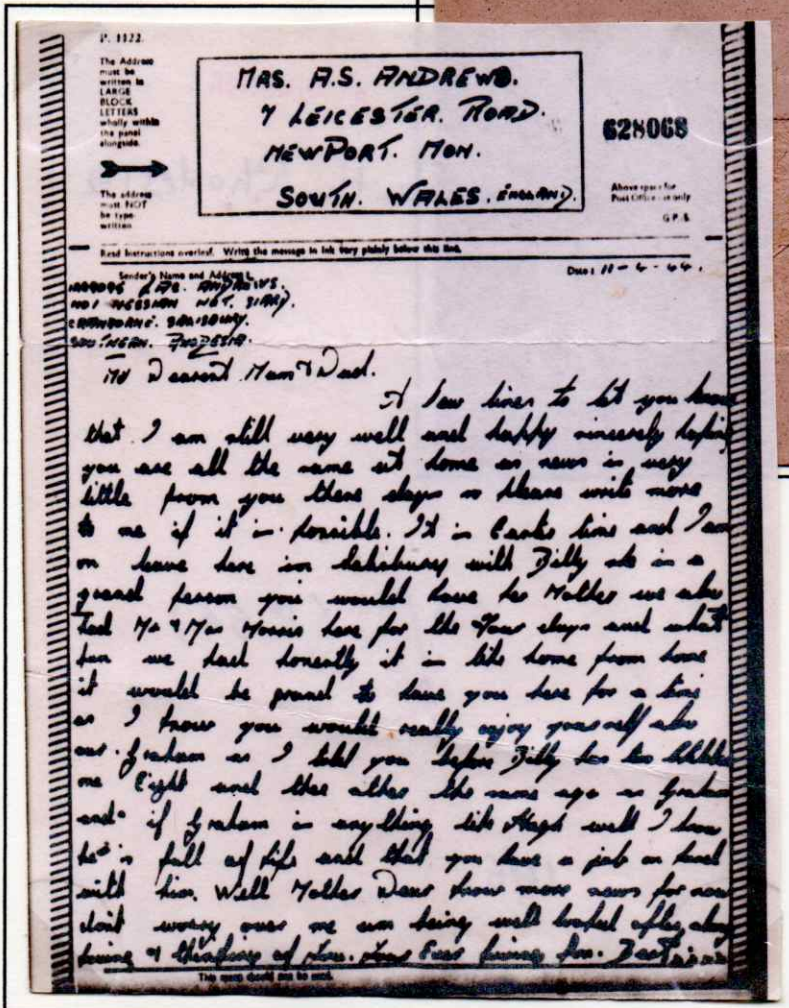 P. 1122.
The Address
must be
written in
LARGE
BLOCK
LETTERS
wholly within
the panel
alongside.
The address
must NOT
be type-
written
MRS. A.S. ANDREWS.
7 LEICESTER. ROAD.
NEWPORT. MON.
SOUTH. WALES. ENGLAND.
628068
Above space for
Post Office use only
G.P.S
Read Instructions overleaf. Write the message in ink very plainly below this line.
Sender's Name and Address
LAC. ANDREWS.
CRANBORNE. SALISBURY.
SOUTHERN. RHODESIA.
Date: 11-4-44.
My Dearest Mam & Dad.
A few lines to let you know
that I am still very well and happy sincerely hoping
you are all the same at home as news is very
little from you these days so please write more
to me if it is possible. It is time and I am
on leave here in Salisbury with Billy she is a
grand person you would love her Mother we also
had Mr & Mrs Morris here for the four days and what
fun we had honestly it is like home from home
it would be grand to have you here for a time
as I know you would really enjoy yourself also
our Graham as I told you before Billy has two
one Eight and the other the same age as Graham
and if Graham is anything like Hugh well I know
he is full of life and that you have a job on hand
with him. Well Mother Dear know more news for now
don't worry over me am being well looked after
loving & thinking of You. Your Ever loving Son.
This space should not be used.